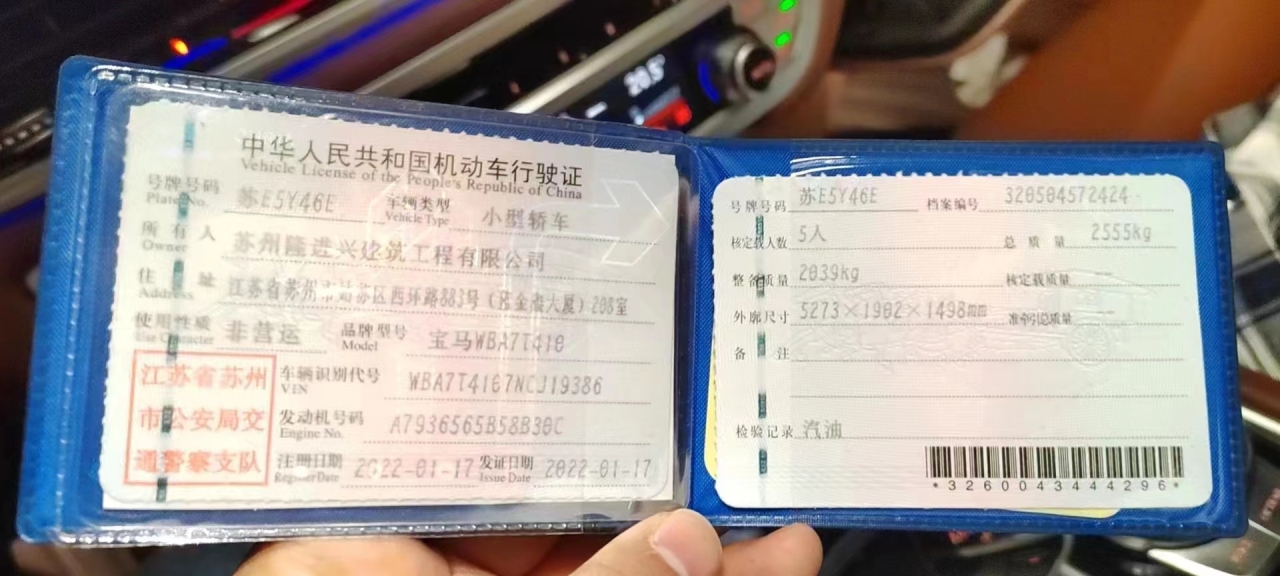 20.5°
中华人民共和国机动车行驶证
Vehicle License of the People's Republic of China
号牌号码 苏E5Y46E 车辆类型 小型轿车
Plate No. Vehicle Type
所有人 苏州隆进兴建筑工程有限公司
Owner
住址 江苏省苏州市姑苏区西环路883号（金大厦）208室
Address
使用性质 非营运 品牌型号 宝马WBA7T410
Use Character Model
江苏省苏州
市公安局交
通警察支队
车辆识别代号 WBA7T4107NCJ19386
VIN
发动机号码 A7936565B58B30C
Engine No.
注册日期 2022-01-17 发证日期 2022-01-17
Register Date Issue Date
号牌号码 苏E5Y46E 档案编号 320504572424
核定载人数 5人 总质量 2555kg
整备质量 2039kg 核定载质量 --
外廓尺寸 5273×1902×1498mm 准牵引总质量 --
备注
检验记录 汽油
*3260043444296*